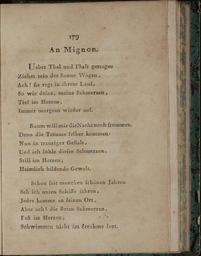 179
An Mignon.
Ueber Thal und Fluß getragen
Ziehet rein der Sonne Wagen,
Ach! sie regt in ihrem Lauf,
So wie deine, meine Schmerzen,
Tief im Herzen,
Immer morgens wieder auf.
Kaum will mir die Nacht noch frommen,
Denn die Träume selber kommen
Nun in trauriger Gestalt,
Und ich fühle dieser Schmerzen,
Still im Herzen,
Heimlich bildende Gewalt.
Schon seit manchen schönen Jahren
Seh ich unten Schiffe fahren,
Jedes kommt an seinen Ort,
Aber ach! die steten Schmerzen,
Fest im Herzen,
Schwimmen nicht im Strome fort.